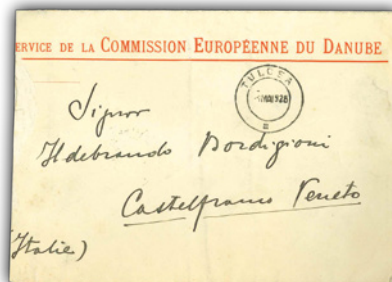 ERVICE DE LA COMMISSION EUROPÉENNE DU DANUBE
TULCEA
Signor
Ildebrando Bordigioni
Castelfranco Veneto
(Italie)